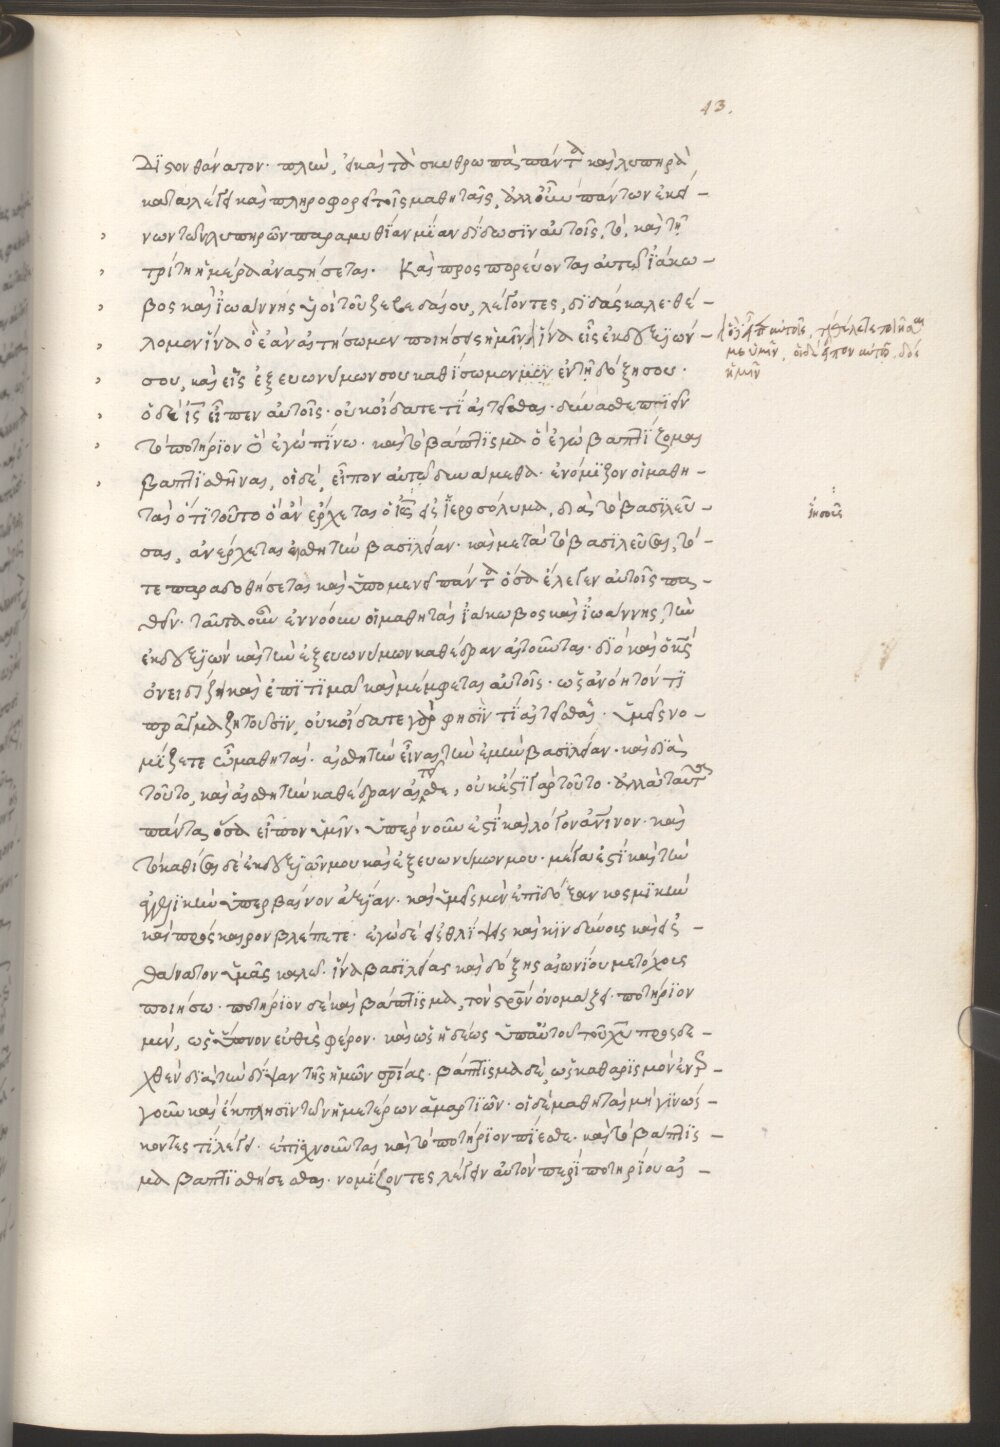 43.
ἄϊςον θάνατον· πλὴν, εἰ καὶ τὰ σκυθρωπὰ πάντα καὶ λυπηρὰ
καταλέγει καὶ πληροφορεῖ τοῖς μαθηταῖς, ἀλλ' οὖν ὑπὲρ πάντων ἐκεί –
νων τῶν λυπηρῶν παραμυθίαν μίαν δίδωσιν αὐτοῖς, τὸ, καὶ τῇ
τρίτῃ ἡμέρα ἀναςήσεται. Καὶ προςπορεύονται αὐτῶ ϊάκω –
βος καὶ ϊωάννης ὑοὶ τοῦ ζεβεδαίου, λέγοντες, διδάσκαλε· θέ –
λομεν ἵνα ὃ ἐὰν αἰτήσωμεν ποιήσῃς ἡμῖν, ἵνα εἷς ἐκ δεξιῶν –
ὁ δὲ εἶπεν αὐτοῖς, τί θέλετε ποιῆσαι
με ὑμῖν, οἱ δὲ εἶπον αὐτῶ, δὸς
ἡμῖν
σου, καὶ εἷς ἐξ ευωνύμων σου καθίσωμεν ἐν τῇ δόξῃ σου·
ὁ δὲ ι̅ς̅ εἶπεν αὐτοῖς· οὐκ οἴδατε τί αἰτεῖσθαι· δύνασθε πιεῖν
τὸ ποτήριον ὃ ἐγὼ πίνω· καὶ τὸ βάπτισμα ὃ ἐγὼ βαπτίζομαι
βαπτισθῆναι, οἱ δὲ, εἶπον αὐτῶ δυνάμεθα· ἐνόμιζον οἱ μαθη –
ταὶ ὅτι τοῦτο ὃ ἀνέρχεται ὁ ι̅ς̅ εἰς ἱεροσόλυμα, διὰ τὸ βασιλεῦ –
ἰησοῦς
σαι, ἀνέρχεται αἰσθητὴν βασιλείαν· καὶ μετὰ τὸ βασιλεῦσαι, τό –
τε παραδοθήσεται καὶ ὑπομενεῖ πάντα ὅσα ἔλεγεν αὐτοῖς πα –
θεῖν· ταῦτα οὖν ἐννόουν οἱ μαθηταὶ ϊάκωβος καὶ ϊωάννης, τὴν
ἐκ δεξιῶν καὶ τὴν ἐξ ευωνύμων καθέδραν αἰτοῦνται· διὸ καὶ ὁ κ̅ς̅
ὀνειδίζει καὶ ἐπιτιμᾶ καὶ μέμφεται αὐτοῖς· ὡς ἀνόητόν τι
πρᾶγμα ζητοῦσιν, οὐκ οἴδατε γὰρ φησὶν τί αἰτεῖσθαι· ὑμεῖς νο –
μίζετε ὦ μαθηταὶ· αἰσθητὴν εἶναι τὴν ἐμὴν βασιλείαν· καὶ διὰ
τοῦτο, καὶ αἰσθητὴν καθέδραν αἰτεῖσθε, οὐκ ἔςι γὰρ τοῦτο· ἀλλὰ ταῦτα
πάντα ὅσα εἶπον ὑμῖν, ὑπὲρ νοῦν ἐςὶ καὶ λόγον ἀν̅ινον· καὶ
τὸ καθίσαι δὲ ἐκ δεξιῶν μου καὶ ἐξ ευωνύμων μου· μέγα ἐςὶ καὶ τὴν
ἀγγελικὴν ὑπερβαῖνον ἀξίαν· καὶ ὑμεῖς μὲν ἐπὶ δόξαν κοσμικὴν
καὶ πρόςκαιρον βλέπετε· ἐγὼ δὲ εἰς θλίψεις καὶ κινδύνους καὶ εἰς –
θάνατον ὑμᾶς καλῶ· ἵνα βασιλείας καὶ δόξης αἰωνίου μετόχους
ποιήσω· ποτήριον δὲ καὶ βάπτισμα, τὸν ς̅ρ̅ὸν ὀνομάζει· ποτήριον
μὲν, ὡς ὕπνον εὐθὺς φέρον· καὶ ὡς ἡδέως ὑπ' αὐτοῦ τοῦ χ̅υ̅ προςδε –
χθὲν διὰ τὴν δίψαν τῆς ἡμῶν σ̅ρ̅ίας· βάπτισμα δὲ, ὡς καθαρισμὸν ἐνερ –
γοῦν καὶ ἔκπλησιν τῶν ἡμετέρων ἁμαρτιῶν· οἱ δὲ μαθηταὶ μὴ γινώς –
κοντες τί λέγει· ἐπισχνοῦνται καὶ τὸ ποτήριον πίεσθε· καὶ τὸ βάπτις –
μα βαπτισθήσεσθαι· νομίζοντες λέγειν αὐτὸν περὶ ποτηρίου αἰ –